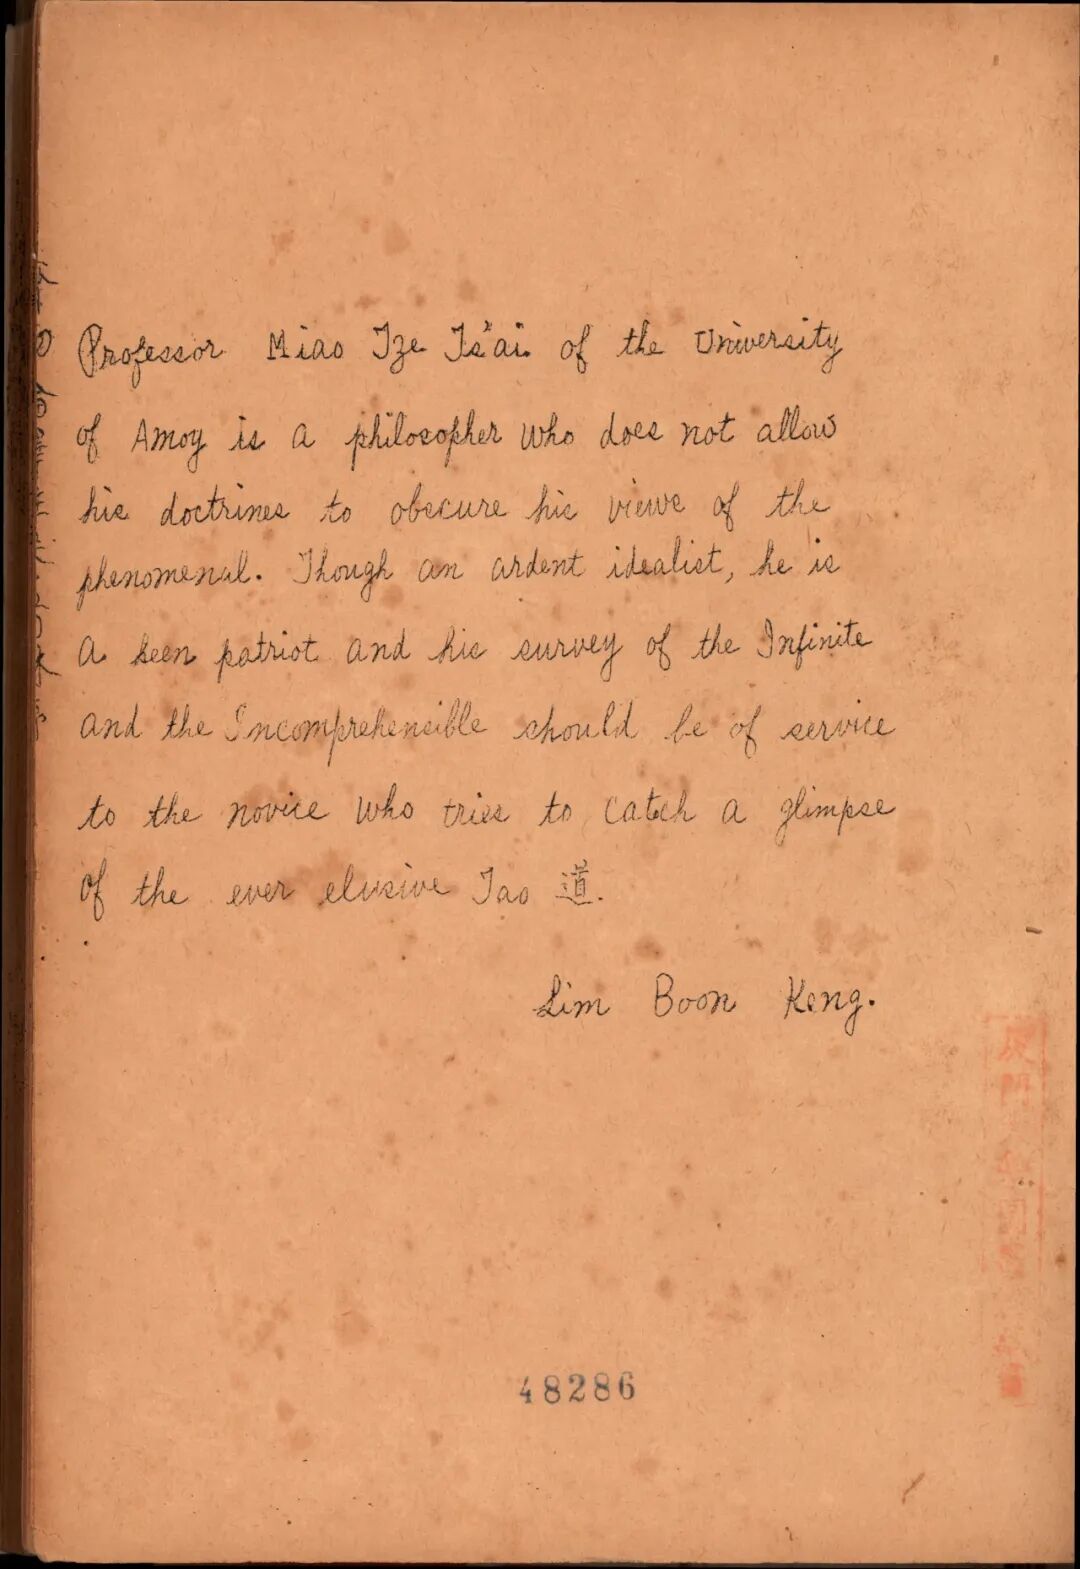 Professor Miao Tze Ts'ai of the University
of Amoy is a philosopher who does not allow
his doctrines to obscure his views of the
phenomenal. Though an ardent idealist, he is
a keen patriot and his survey of the Infinite
and the Incomprehensible should be of service
to the novice who tries to catch a glimpse
of the ever elusive Tao 道.
Lim Boon Keng.
48286